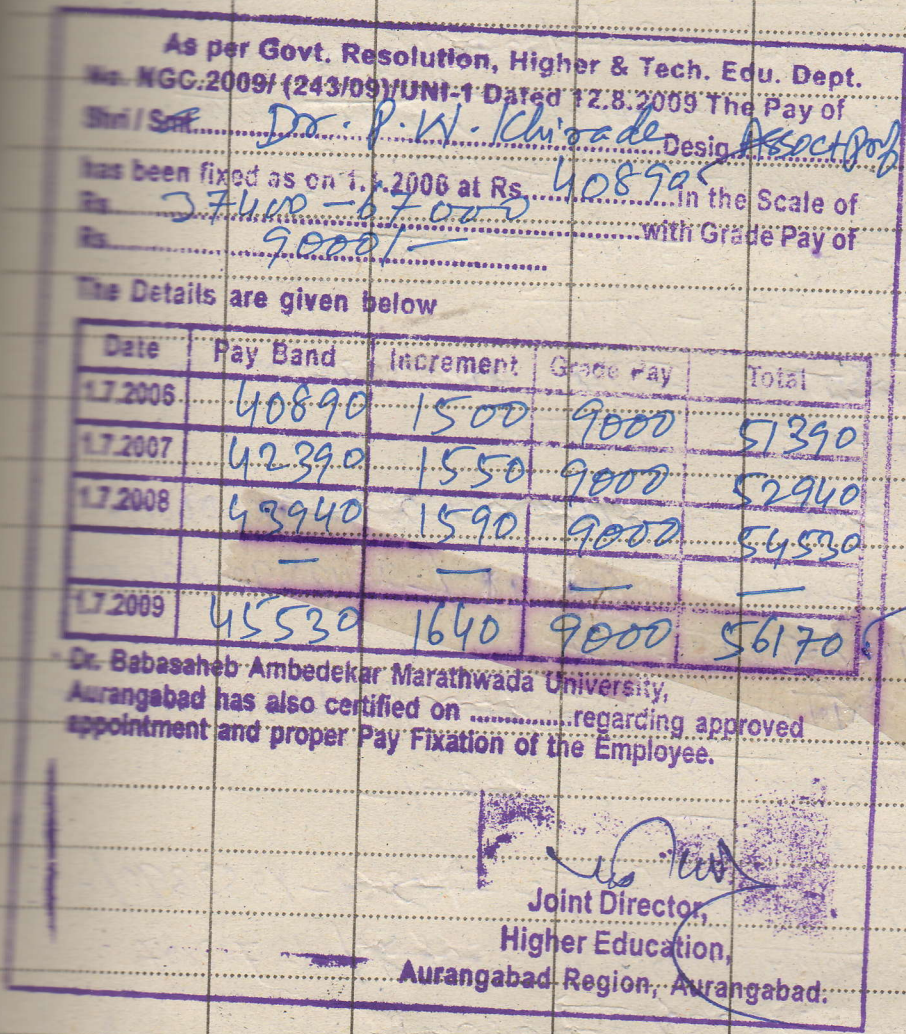 As per Govt. Resolution, Higher & Tech. Edu. Dept.
No. NGC.2009/ (243/09)/UNI-1 Dated 12.8.2009 The Pay of
Shri / Smt. Dr. P. W. Khirade Desig. Assoct Prof
has been fixed as on 1.1.2006 at Rs. 40890 in the Scale of
Rs. 37400 - 67000 with Grade Pay of
Rs. 9000/-
The Details are given below
Date Pay Band Increment Grade Pay Total
1.7.2006 40890 1500 9000 51390
1.7.2007 42390 1550 9000 52940
1.7.2008 43940 1590 9000 54530
— — — —
1.7.2009 45530 1640 9000 56170
Dr. Babasaheb Ambedekar Marathwada University,
Aurangabad has also certified on ...............regarding approved
appointment and proper Pay Fixation of the Employee.
Joint Director,
Higher Education,
Aurangabad Region, Aurangabad.